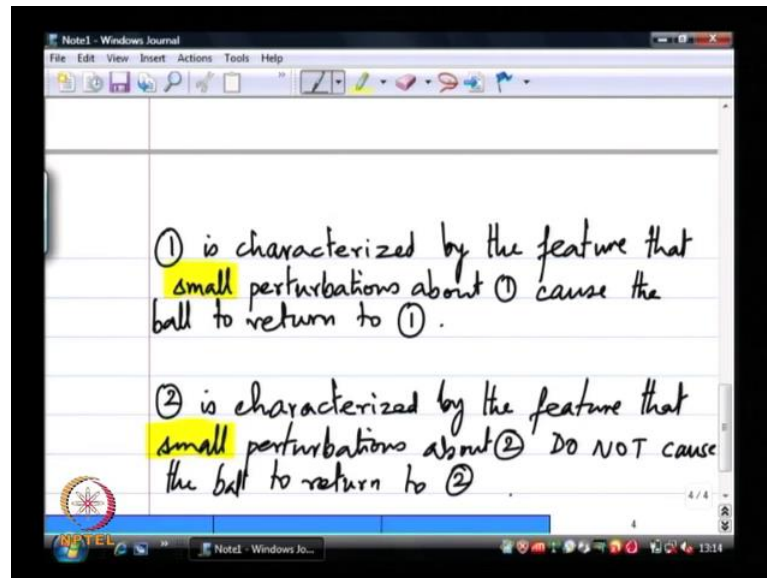 Note1 - Windows Journal
File Edit View Insert Actions Tools Help
① is characterized by the feature that
small perturbations about ① cause the
ball to return to ①.
② is characterized by the feature that
small perturbations about ② DO NOT cause
the ball to return to ②
4/4
4
NPTEL
Note1 - Windows Jo...
13:14